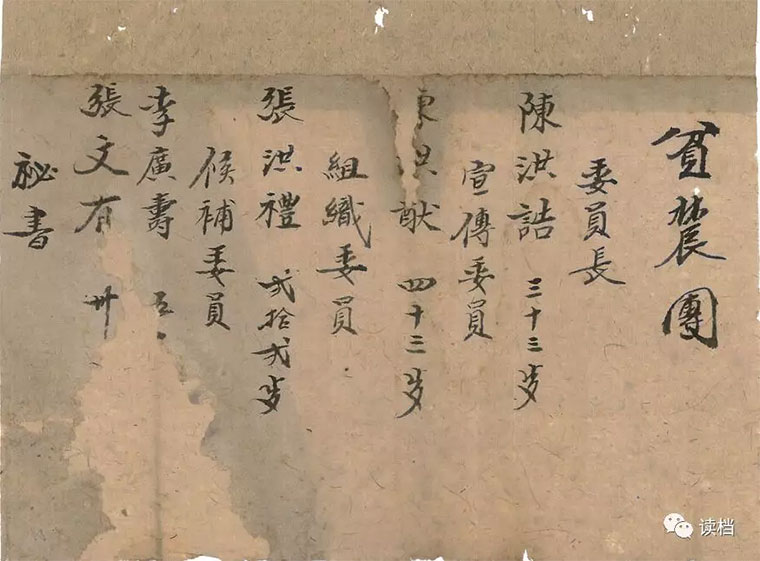 貧農團
委員長
陳洪誥 三十三岁
宣傳委員
洪猷 四十二岁
組織委員
張洪禮 弍拾弍岁
候補委員
李廣壽 五
張文有 卅
祕書
读档